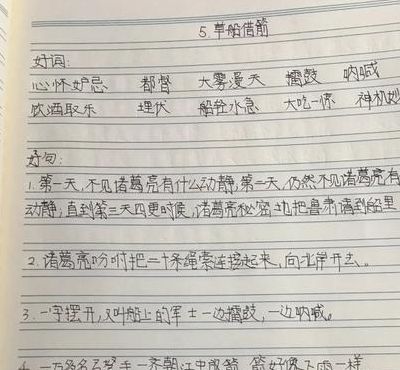 5.草船借箭
好词:
心怀妒忌 都督 大雾漫天 擂鼓 呐喊
饮酒取乐 埋伏 船轻水急 大吃一惊 神机妙
好句:
1.第一天,不见诸葛亮有什么动静,第二天,仍然不见诸葛亮有
动静,直到第三天四更时候,诸葛亮秘密地把鲁肃请到船里
2.诸葛亮吩咐把二十条绳索连接起来,向北岸开去。
3.一字摆开,又叫船上的军士一边擂鼓,一边呐喊。
4.一万多名弓弩手一齐朝江中放箭,箭好像下雨一样